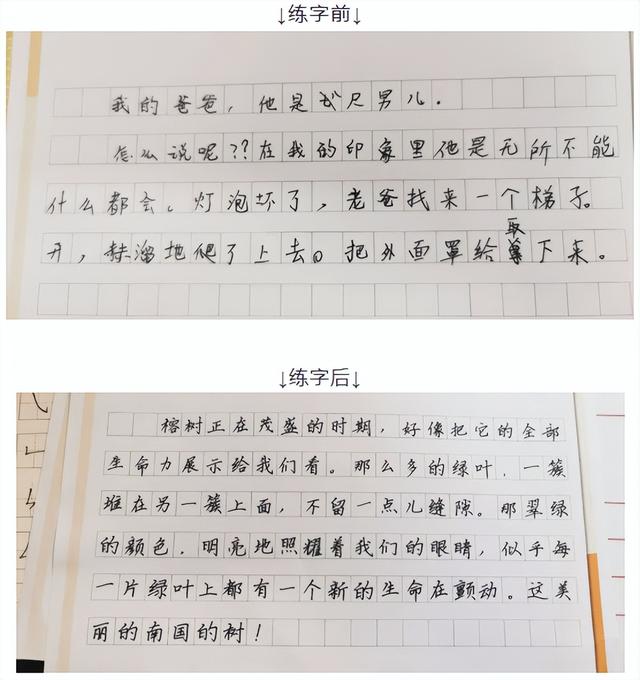 ↓练字前↓
我的爸爸，他是七尺男儿.
怎么说呢??在我的印象里他是无所不能
什么都会。灯泡坏了，老爸找来一个梯子。
开，哧溜地爬了上去。把外面罩给取下来。
↓练字后↓
榕树正在茂盛的时期，好像把它的全部
生命力展示给我们看。那么多的绿叶，一簇
堆在另一簇上面，不留一点儿缝隙。那翠绿
的颜色，明亮地照耀着我们的眼睛，似乎每
一片绿叶上都有一个新的生命在颤动。这美
丽的南国的树！